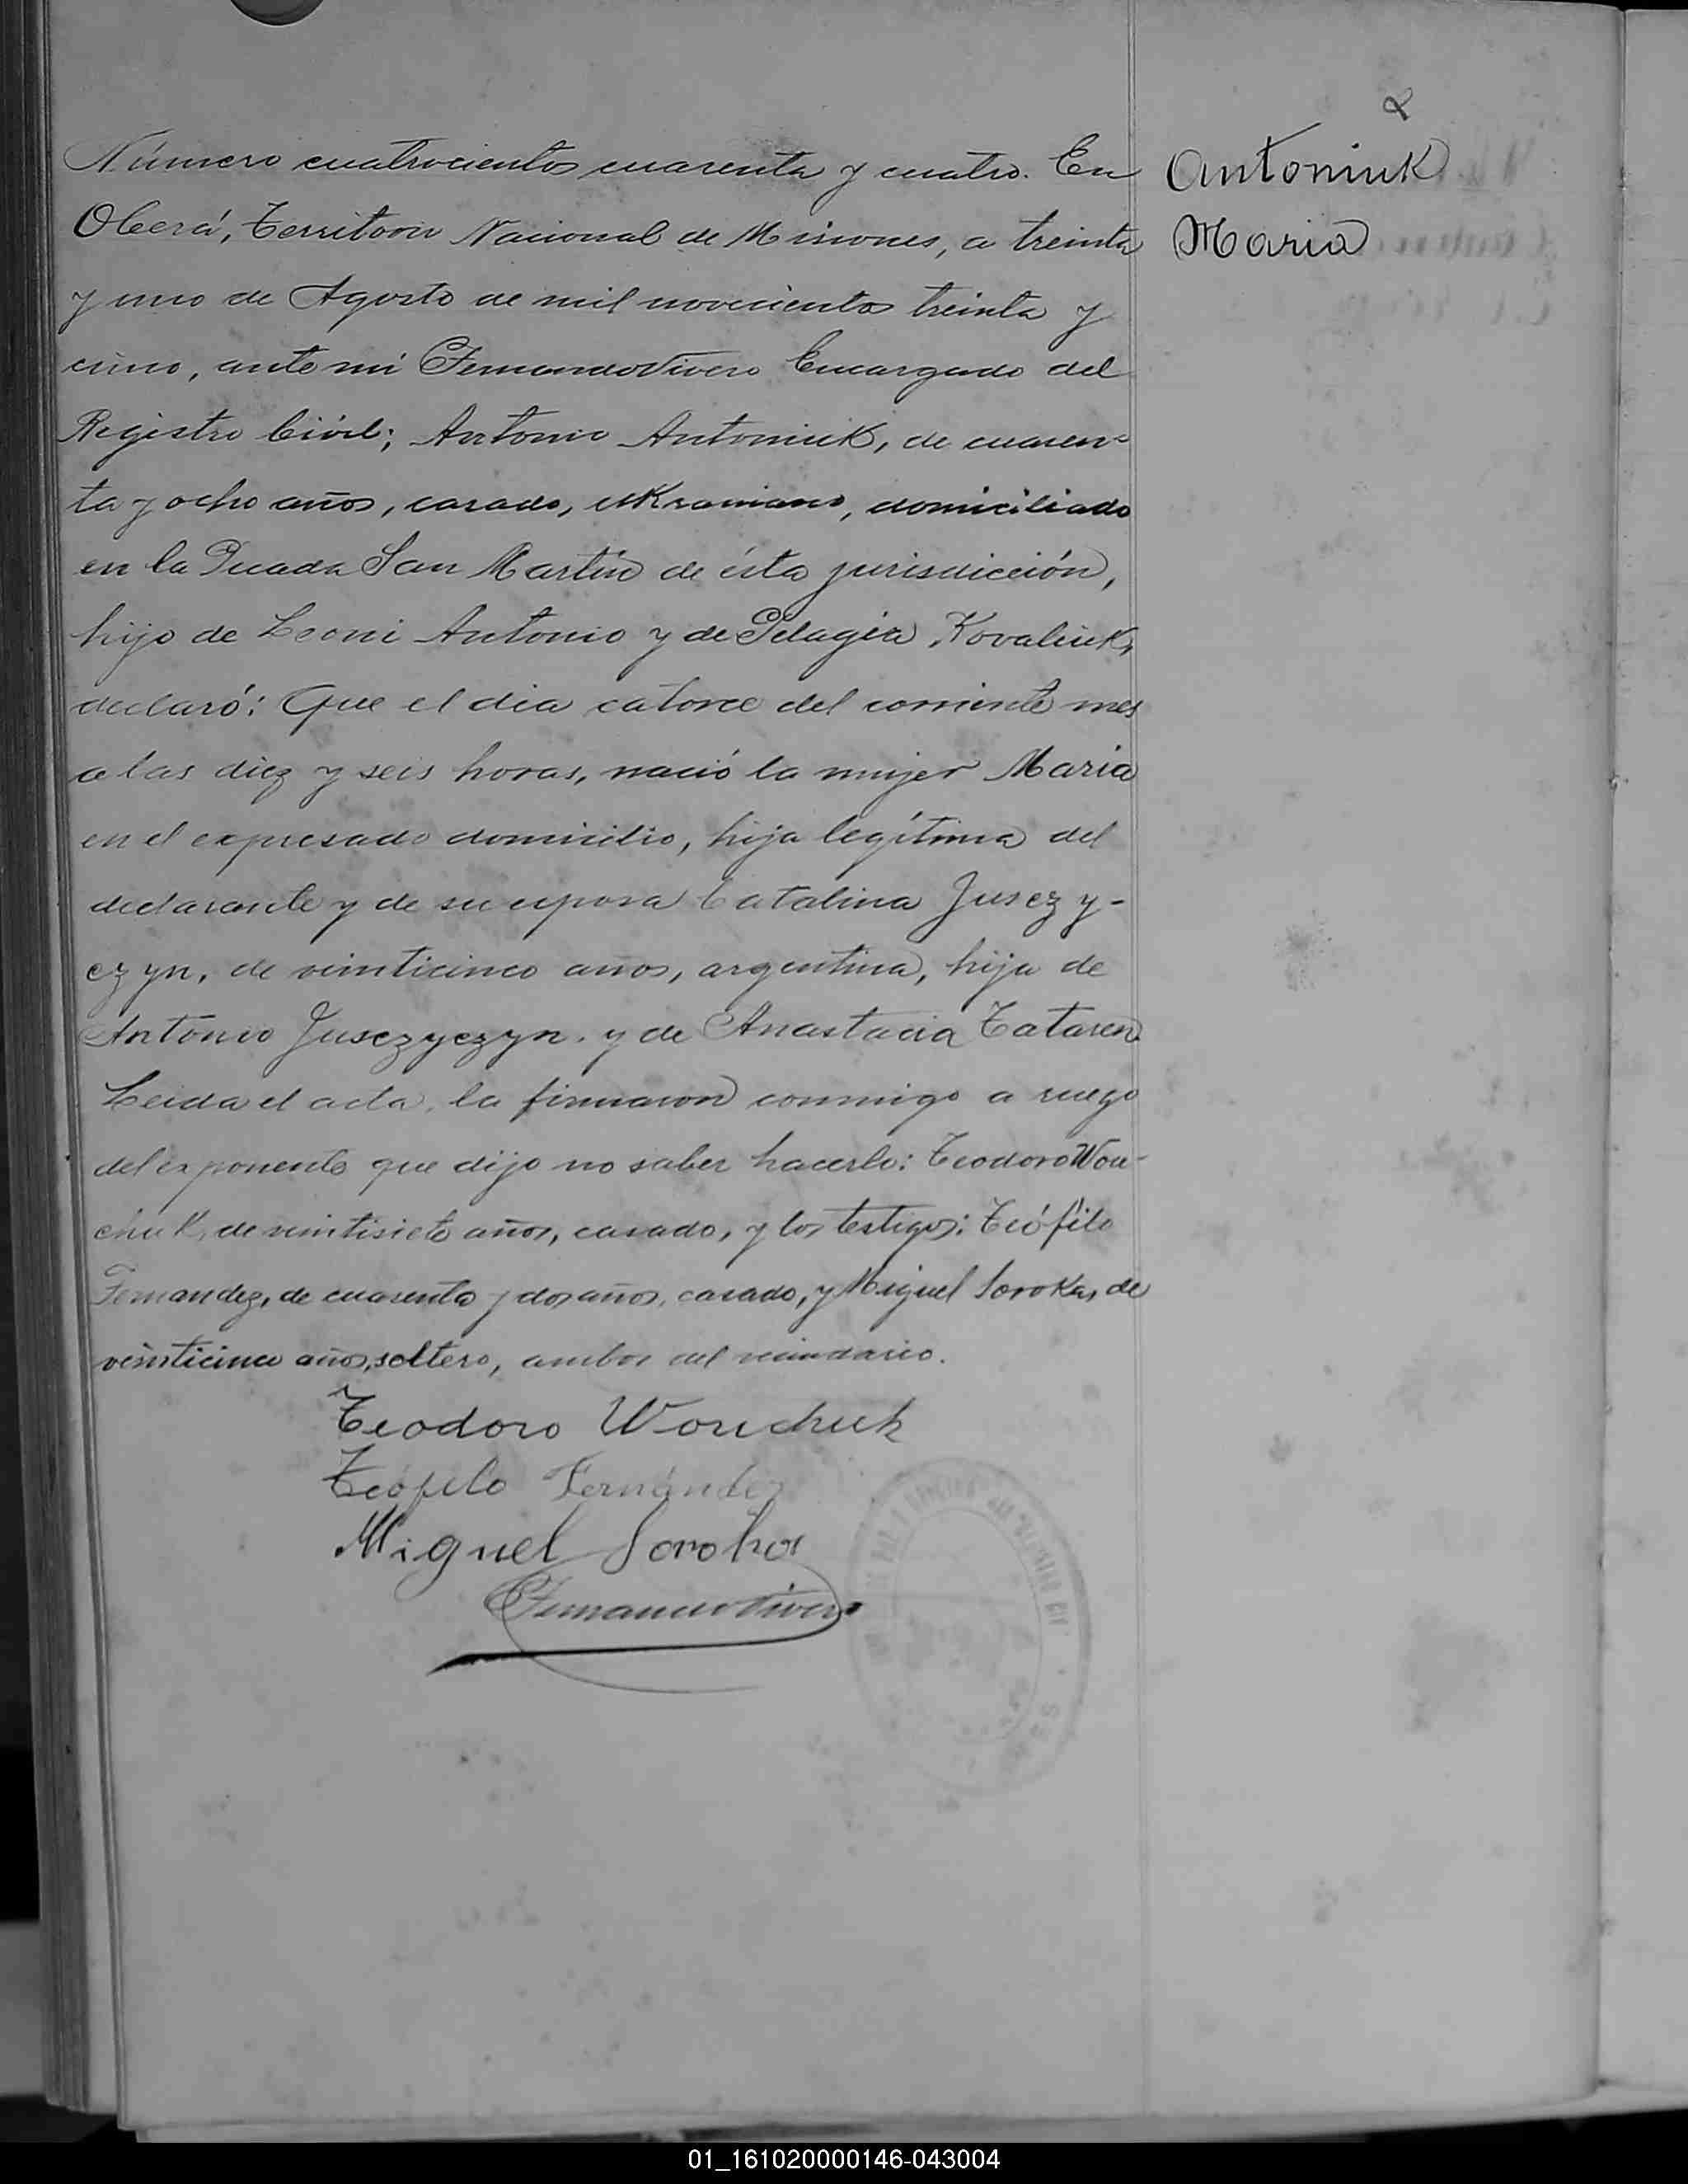 Número cuatrocientos cuarenta y cuatro. En
Oberá, Territorio Nacional de Misiones, a treinta
y uno de Agosto de mil novecientos treinta y
cinco, ante mi Fernando Vivero Encargado del
Registro Civil; Antonio Antoniuk, de cuaren-
ta y ocho años, casado, ukraniano, domiciliado
en la Picada San Martín de ésta jurisdicción,
hijo de Leoni Antonio y de Pelagia Kovaliuk,
declaró: Que el dia catorce del corriente mes
a las diez y seis horas, nació la mujer Maria
en el expresado domicilio, hija legítima del
declarante y de su esposa Catalina Jusczy-
czyn, de veinticinco años, argentina, hija de
Antonio Jusczyczyn. y de Anastacia Tataren
Leida el acta, la firmaron conmigo a ruego
del exponente que dijo no saber hacerlo: Teodoro Wou-
chuk, de veintisiete años, casado, y los testigos: Teófilo
Fernandez, de cuarenta y dos años, casado, y Miguel Soroka, de
veinticinco años, soltero, ambos del vecindario.
Teodoro Wouchuk
Teófilo Fernández
Miguel Soroka
Fernando Vivero
Antoniuk
Maria
01_161020000146-043004